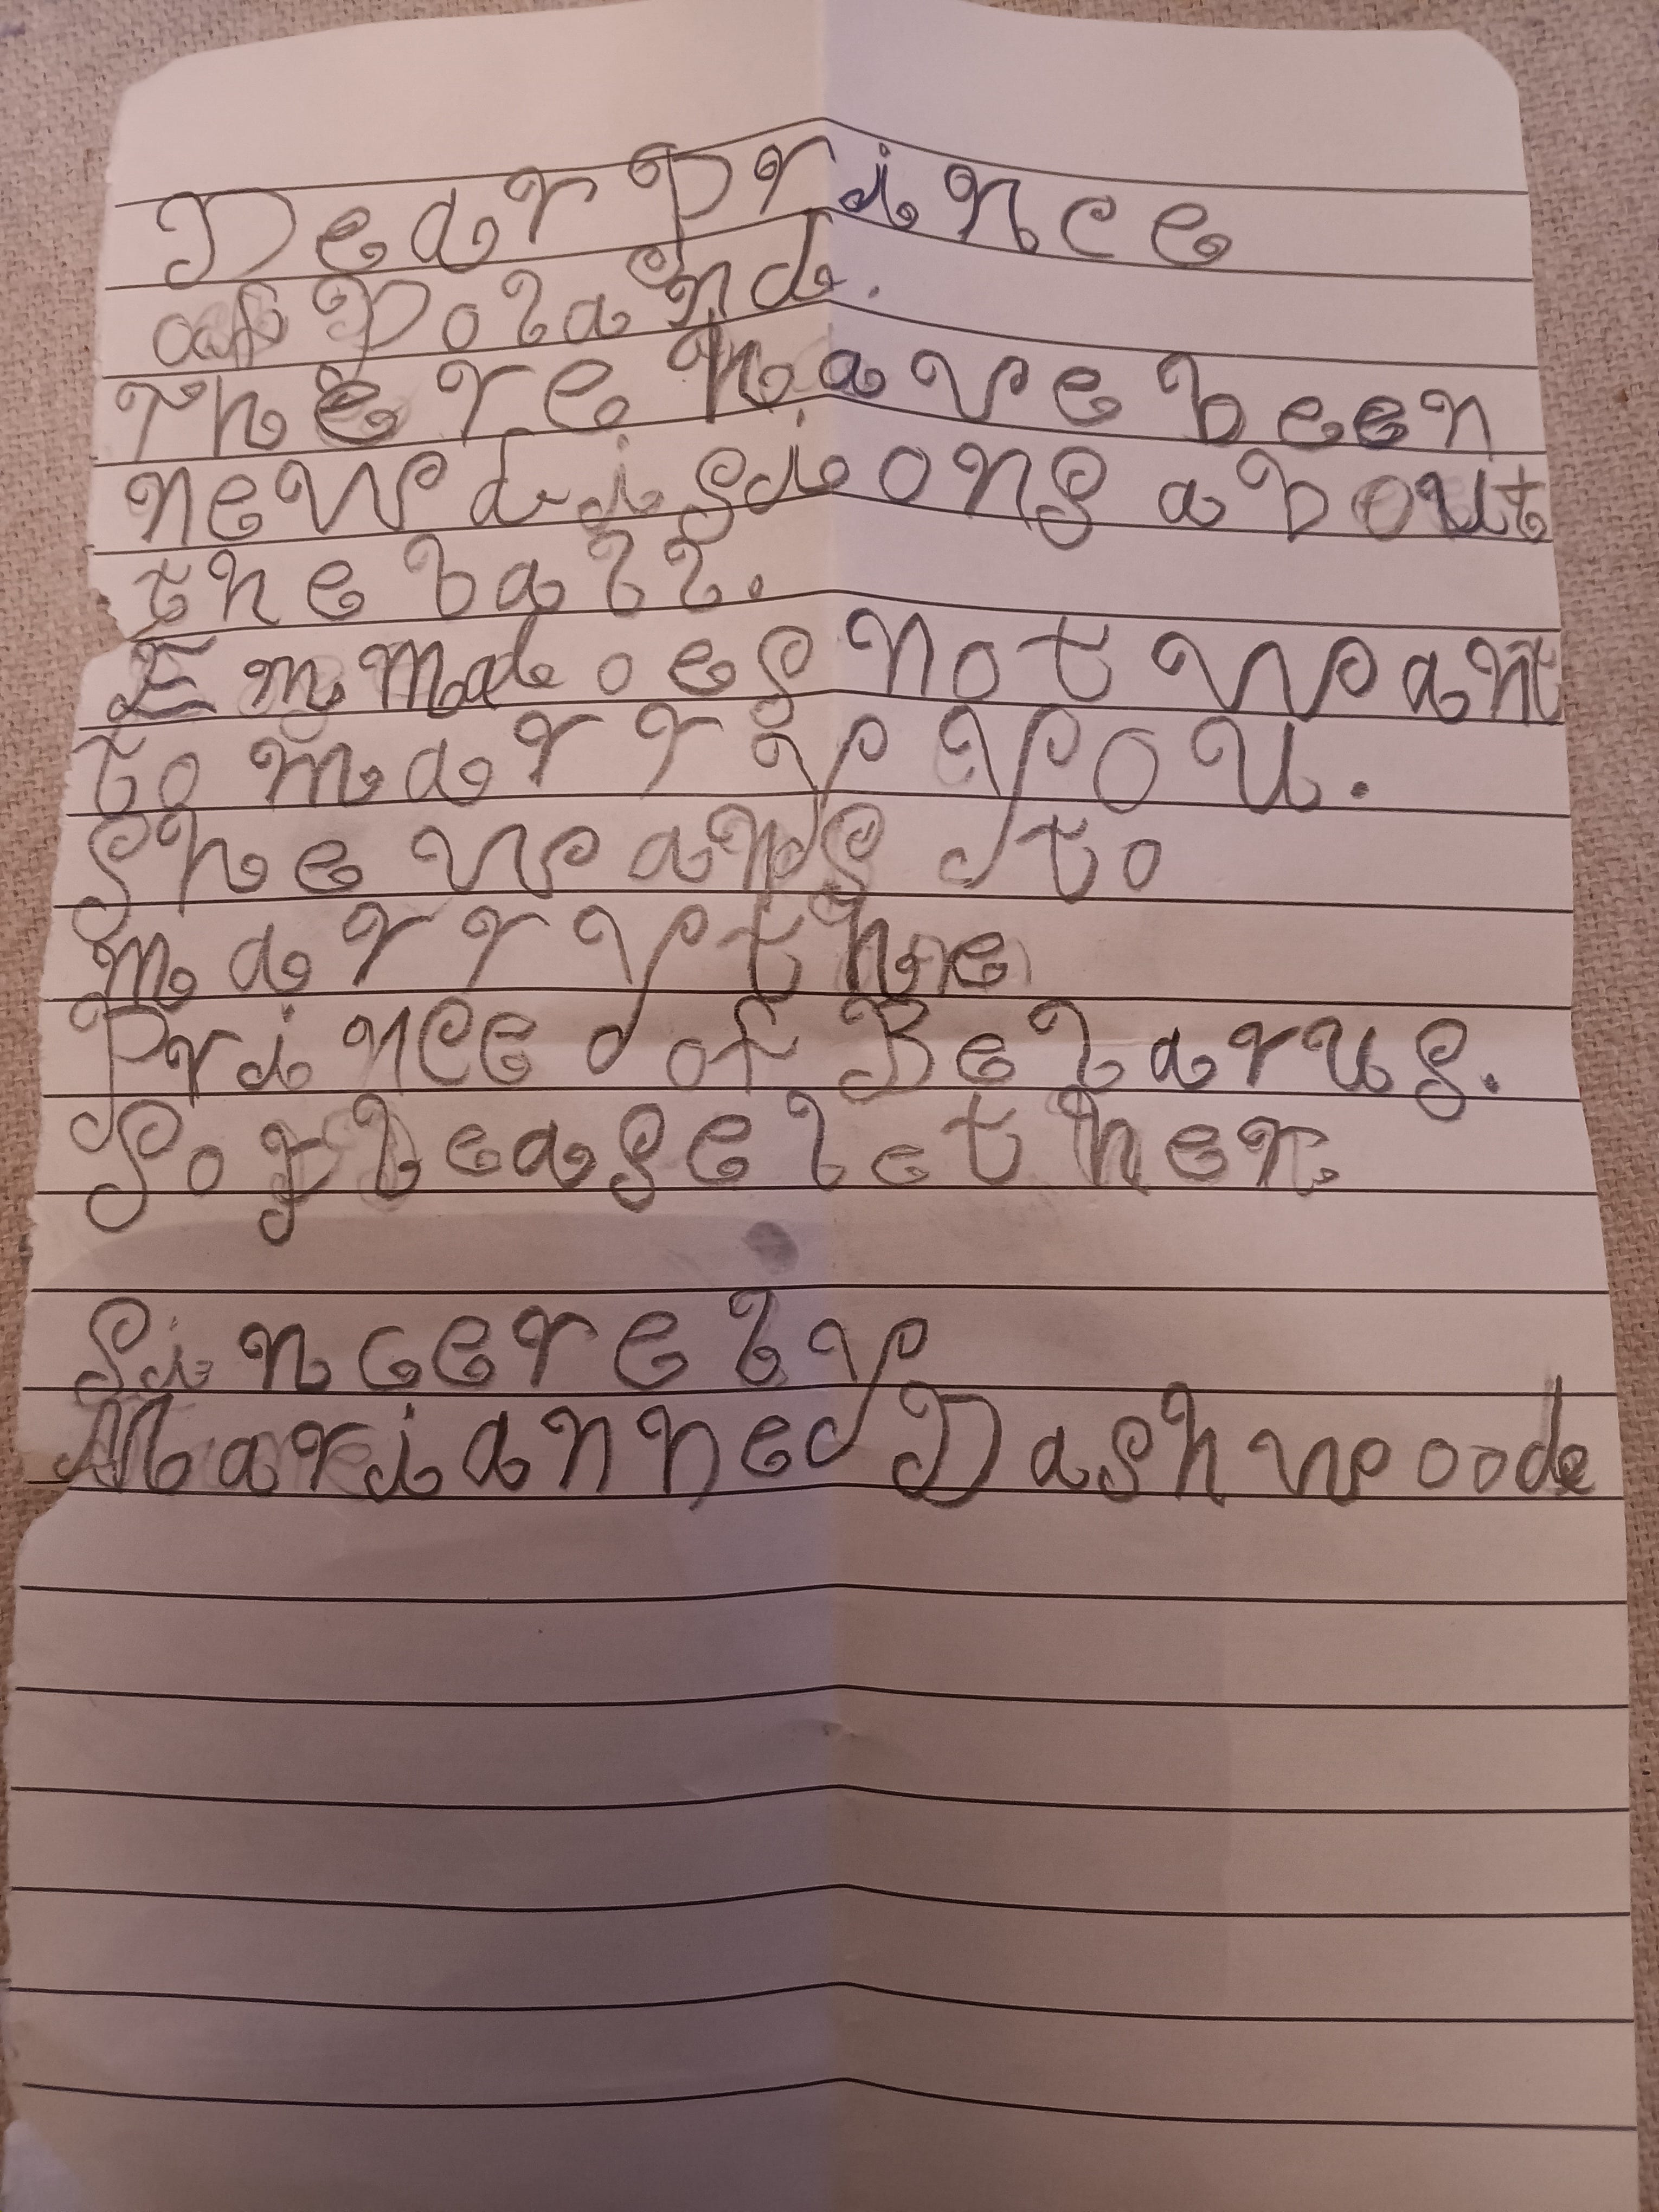 Dear Prince
of Poland.
There have been
new disisions about
the ball.
Emma does not want
to marry you.
She wans to
marry the
Prince of Belarus.
So please let her
Sincerely
Marianne Dashwood